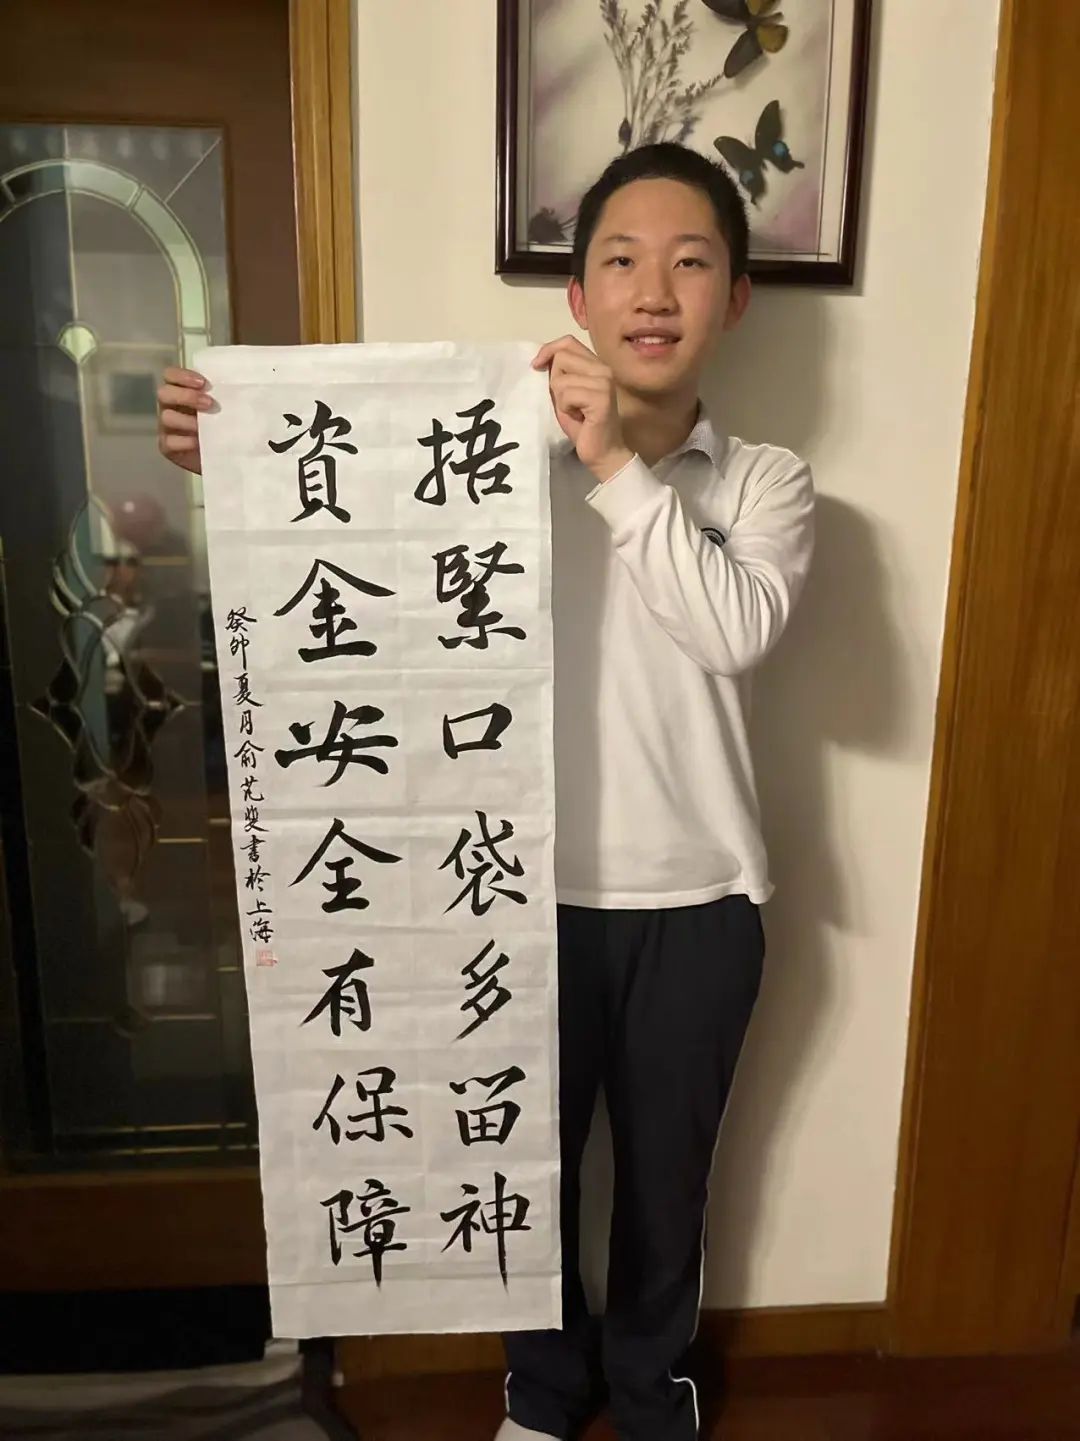 捂緊口袋多留神
資金安全有保障
癸卯夏月俞芃斐書於上海